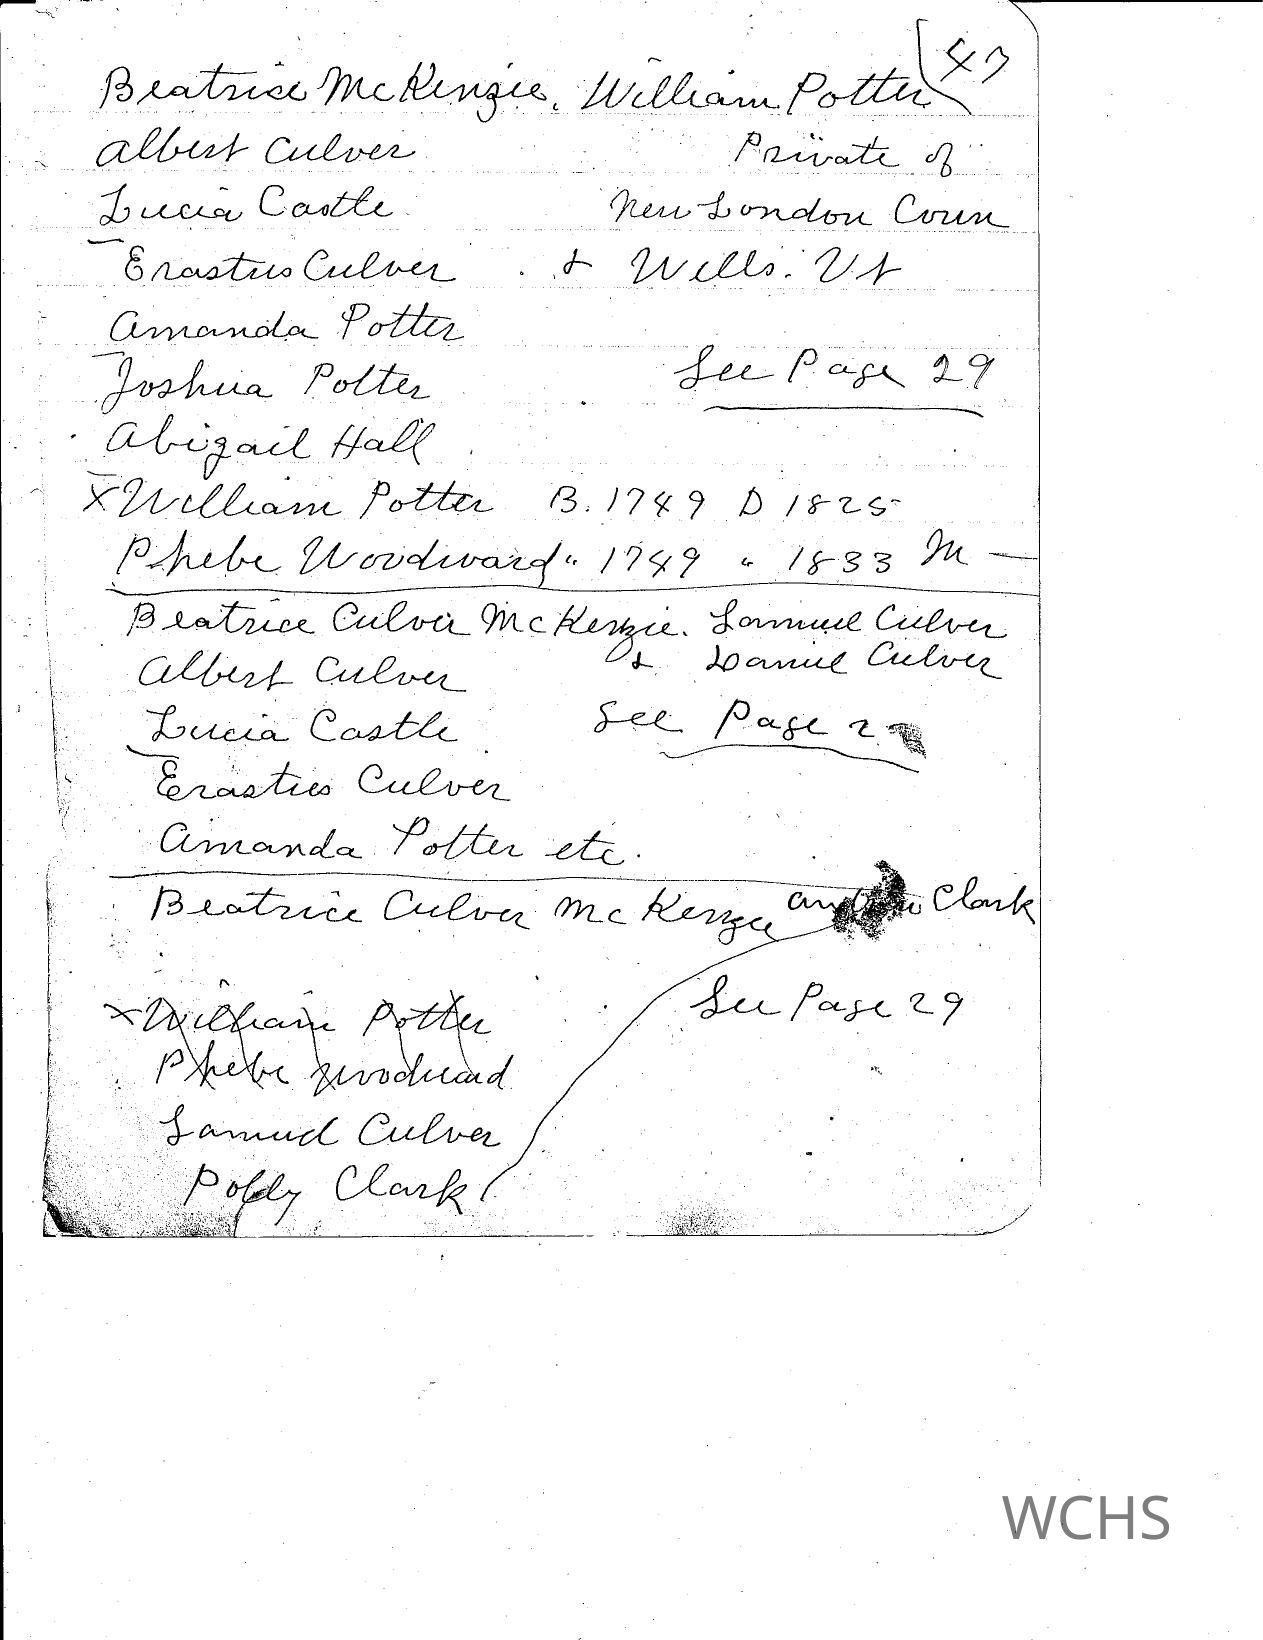 47
Beatrice McKenzie. William Potter
Albert Culver Private of
Lucia Castle New London Conn
Erastus Culver & Wells. Vt
Amanda Potter
Joshua Potter See Page 29
Abigail Hall
X William Potter B. 1749 D 1825
Phebe Woodward " 1749 " 1833 M —
Beatrice Culver McKenzie. Samuel Culver
Albert Culver & Daniel Culver
Lucia Castle See Page 2
Erastus Culver
Amanda Potter etc.
Beatrice Culver McKenzie Clark
X William Potter See Page 29
Phebe Woodward
Samuel Culver
Polly Clark
WCHS